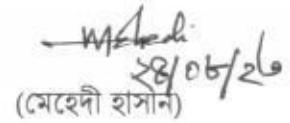 Mehedi
২৪/০৮/২৩
(মেহেদী হাসান)